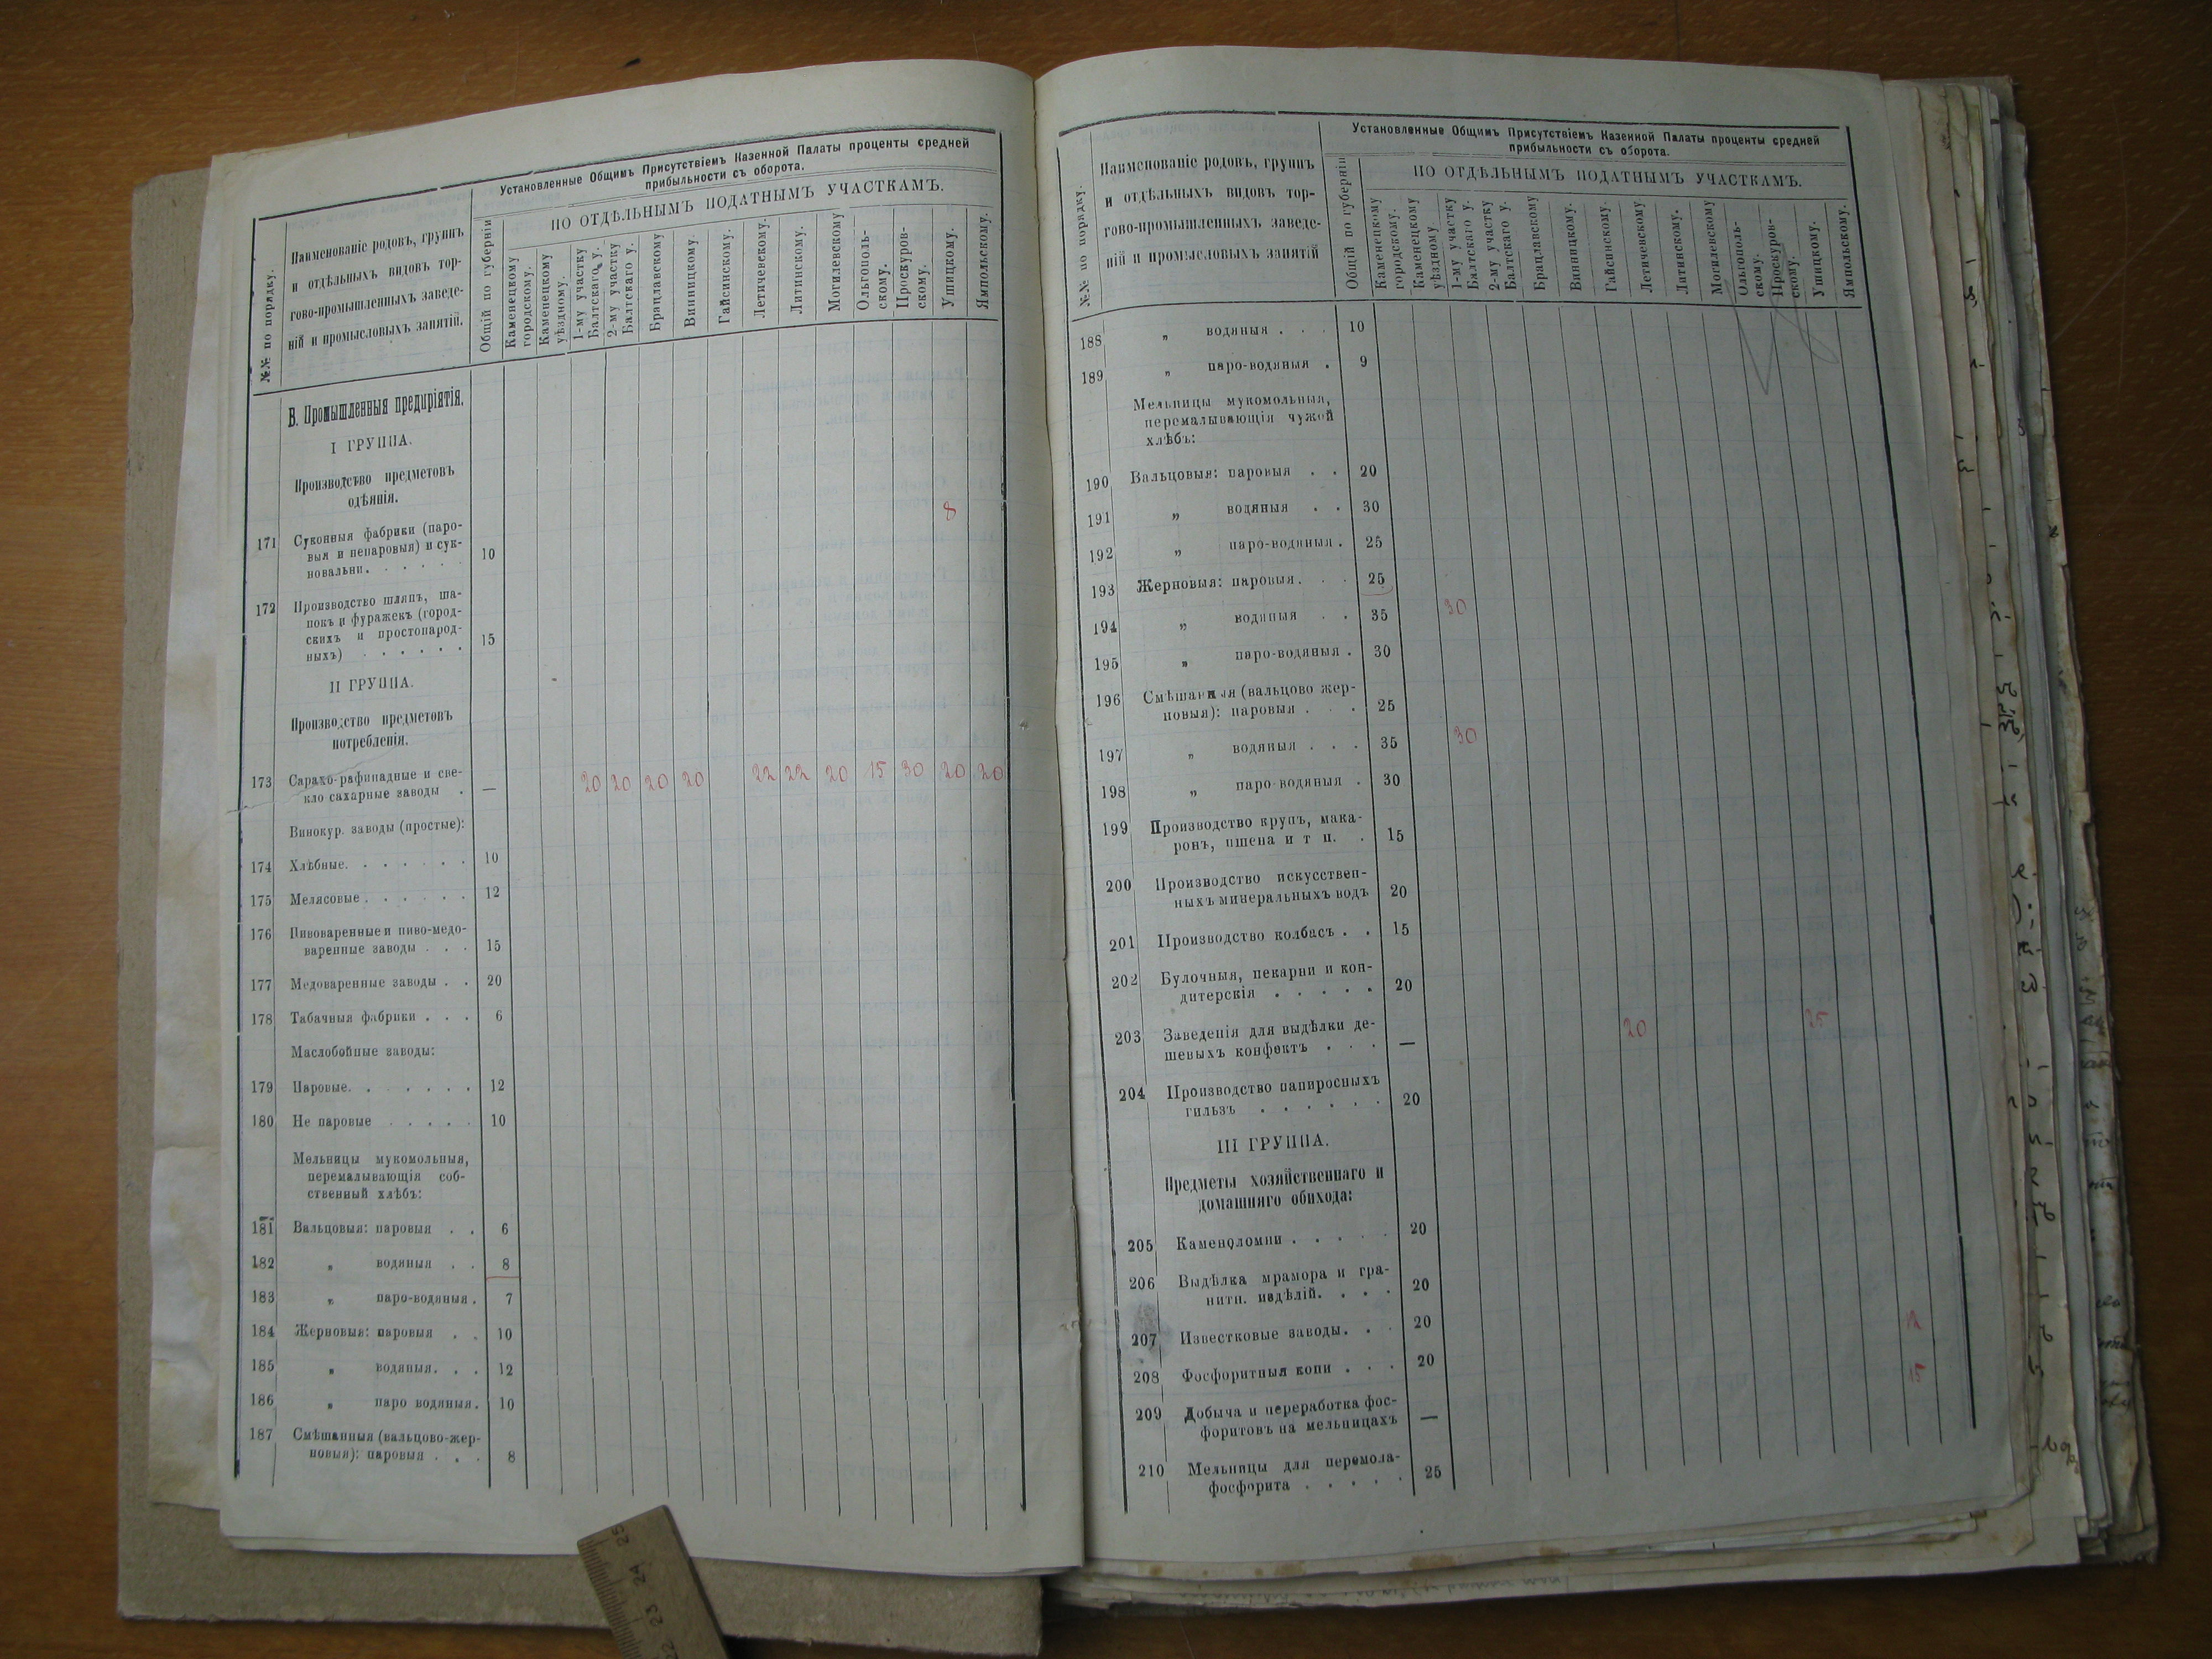 Установленные Общимъ Присутствіемъ Казенной Палаты проценты средней
прибыльности съ оборота.
№№ по порядку.
Наименованіе родовъ, группъ
и отдѣльныхъ видовъ тор-
гово-промышленныхъ заведе-
ній и промысловыхъ занятій.
Общій по губерніи
ПО ОТДѢЛЬНЫМЪ ПОДАТНЫМЪ УЧАСТКАМЪ.
Каменецкому
городскому.
Каменецкому
уѣздному.
1-му участку
Балтскаго у.
2-му участку
Балтскаго у.
Брацлавскому
Винницкому.
Гайсинскому.
Летичевскому.
Литинскому.
Могилевскому
Ольгополь-
скому.
Проскуров-
скому.
Ушицкому.
Ямпольскому.
В. Промышленныя предпріятія.
I ГРУППА.
Производство предметовъ
одѣянія.
8
171 Суконныя фабрики (паро-
выя и непаровыя) и сук-
новальни. . . . . . 10
172 Производство шляпъ, ша-
покъ и фуражекъ (город-
скихъ и простонарод-
ныхъ) . . . . . . 15
II ГРУППА.
Производство предметовъ
потребленія.
173 Сарахо-рафинадные и све-
кло сахарные заводы . — 20 20 20 20 22 22 20 15 30 20 20
Винокур. заводы (простые):
174 Хлѣбные. . . . . . . 10
175 Мелясовые . . . . . . 12
176 Пивоваренные и пиво-медо-
варенные заводы . . . 15
177 Медоваренные заводы . . 20
178 Табачныя фабрики . . . 6
Маслобойные заводы:
179 Паровые. . . . . . . 12
180 Не паровые . . . . . 10
Мельницы мукомольныя,
перемалывающія соб-
ственный хлѣбъ:
181 Вальцовыя: паровыя . . 6
182 „ водяныя . . 8
183 „ паро-водяныя . 7
184 Жерновыя: паровыя . . 10
185 „ водяныя. . . 12
186 „ паро водяныя. 10
187 Смѣшанныя (вальцово-жер-
новыя): паровыя . . . 8
Установленные Общимъ Присутствіемъ Казенной Палаты проценты средней
прибыльности съ оборота.
№№ по порядку.
Наименованіе родовъ, группъ
и отдѣльныхъ видовъ тор-
гово-промышленныхъ заведе-
ній и промысловыхъ занятій
Общій по губерніи
ПО ОТДѢЛЬНЫМЪ ПОДАТНЫМЪ УЧАСТКАМЪ.
Каменецкому
городскому.
Каменецкому
уѣздному
1-му участку
Балтскаго у.
2-му участку
Балтскаго у.
Брацлавскому
Винницкому.
Гайсинскому.
Летичевскому
Латинскому.
Могилевскому
Ольгополь-
скому.
Проскуров-
скому.
Ушицкому.
Ямпольскому.
188 „ водяныя . . . 10
189 „ паро-водяныя . 9
Мельницы мукомольныя,
перемалывающія чужой
хлѣбъ:
190 Вальцовыя: паровыя . . 20
191 „ водяныя . . 30
192 „ паро-водяныя . 25
193 Жерновыя: паровыя. . . 25
194 „ водяныя . . 35 30
195 „ паро-водяныя . 30
196 Смѣшанныя (вальцово жер-
новыя): паровыя . . . 25
197 „ водяныя . . . 35 30
198 „ паро-водяныя . 30
199 Производство крупъ, мака-
ронъ, пшена и т п. . 15
200 Производство искусствен-
ныхъ минеральныхъ водъ 20
201 Производство колбасъ . . 15
202 Булочныя, пекарни и кон-
дитерскія . . . . . 20
203 Заведенія для выдѣлки де-
шевыхъ конфектъ . . . — 20 25
204 Производство папиросныхъ
гильзъ . . . . . . 20
III ГРУППА.
Предметы хозяйственнаго и
домашняго обихода:
205 Каменоломни . . . . . 20
206 Выдѣлка мрамора и гра-
нитн. издѣлій. . . . 20
207 Известковые заводы. . . 20
208 Фосфоритныя копи . . . 20 15
209 Добыча и переработка фос-
форитовъ на мельницахъ —
210 Мельницы для перемола-
фосфорита . . . . . 25
25
24
23
22